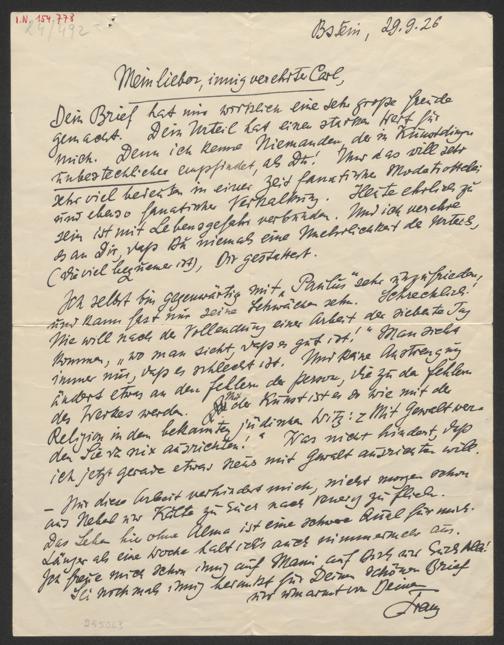 I.N. 154.778
29/492-
Bstein, 29.9.26
Mein lieber, innig verehrter Carl,
Dein Brief hat mir wirklich eine sehr große Freude
gemacht. Dein Urteil hat einen starken Wert für
mich. Denn ich kenne Niemanden, der in Kunstdingen
unbestechlicher empfindet, als Du! Und das will sehr
sehr viel bedeuten in einer Zeit fanatischer
und ebenso fanatischer Verkalkung. Heute ehrlich zu
sein ist mit Lebensgefahr verbunden. Und ich verehre
es an Dir, daß Du niemals eine Unehrlichkeit des Urteils,
(die viel bequemer ist), Dir gestattest.
Ich selbst bin gegenwärtig mit „Paulus" sehr unzufrieden,
und kann fast nur seine Schwächen sehn. Schrecklich!
Nie will nach der Vollendung einer Arbeit der siebente Tag
kommen, „wo man sieht, daß es gut ist!" Man sieht
immer nur, daß es schlecht ist. Und keine Anstrengung
ändert etwas an den Fehlern der Person, die zu den Fehlern
des Werkes werden. Mit der Kunst ist es so wie mit der
Religion in dem bekannten jüdischen Witz: „Mit Gewalt wer-
den Sie da nix ausrichten!" Was nicht hindert, daß
ich jetzt gerade etwas Neues mit Gewalt ausrichten will.
– Nur diese Arbeit verhindert mich, nicht morgen schon
aus Nebel und Kälte zu Euch nach Venedig zu fliehn.
Das Leben hier ohne Alma ist eine schwere Qual für mich.
Länger als eine Woche halt ichs auch nimmermehr aus.
Ich freue mich schon innig auf Mami, auf Dich und Euch Alle!
Sei nochmals innig bedankt für Deinen schönen Brief
und umarmt von Deinem
Franz
245063